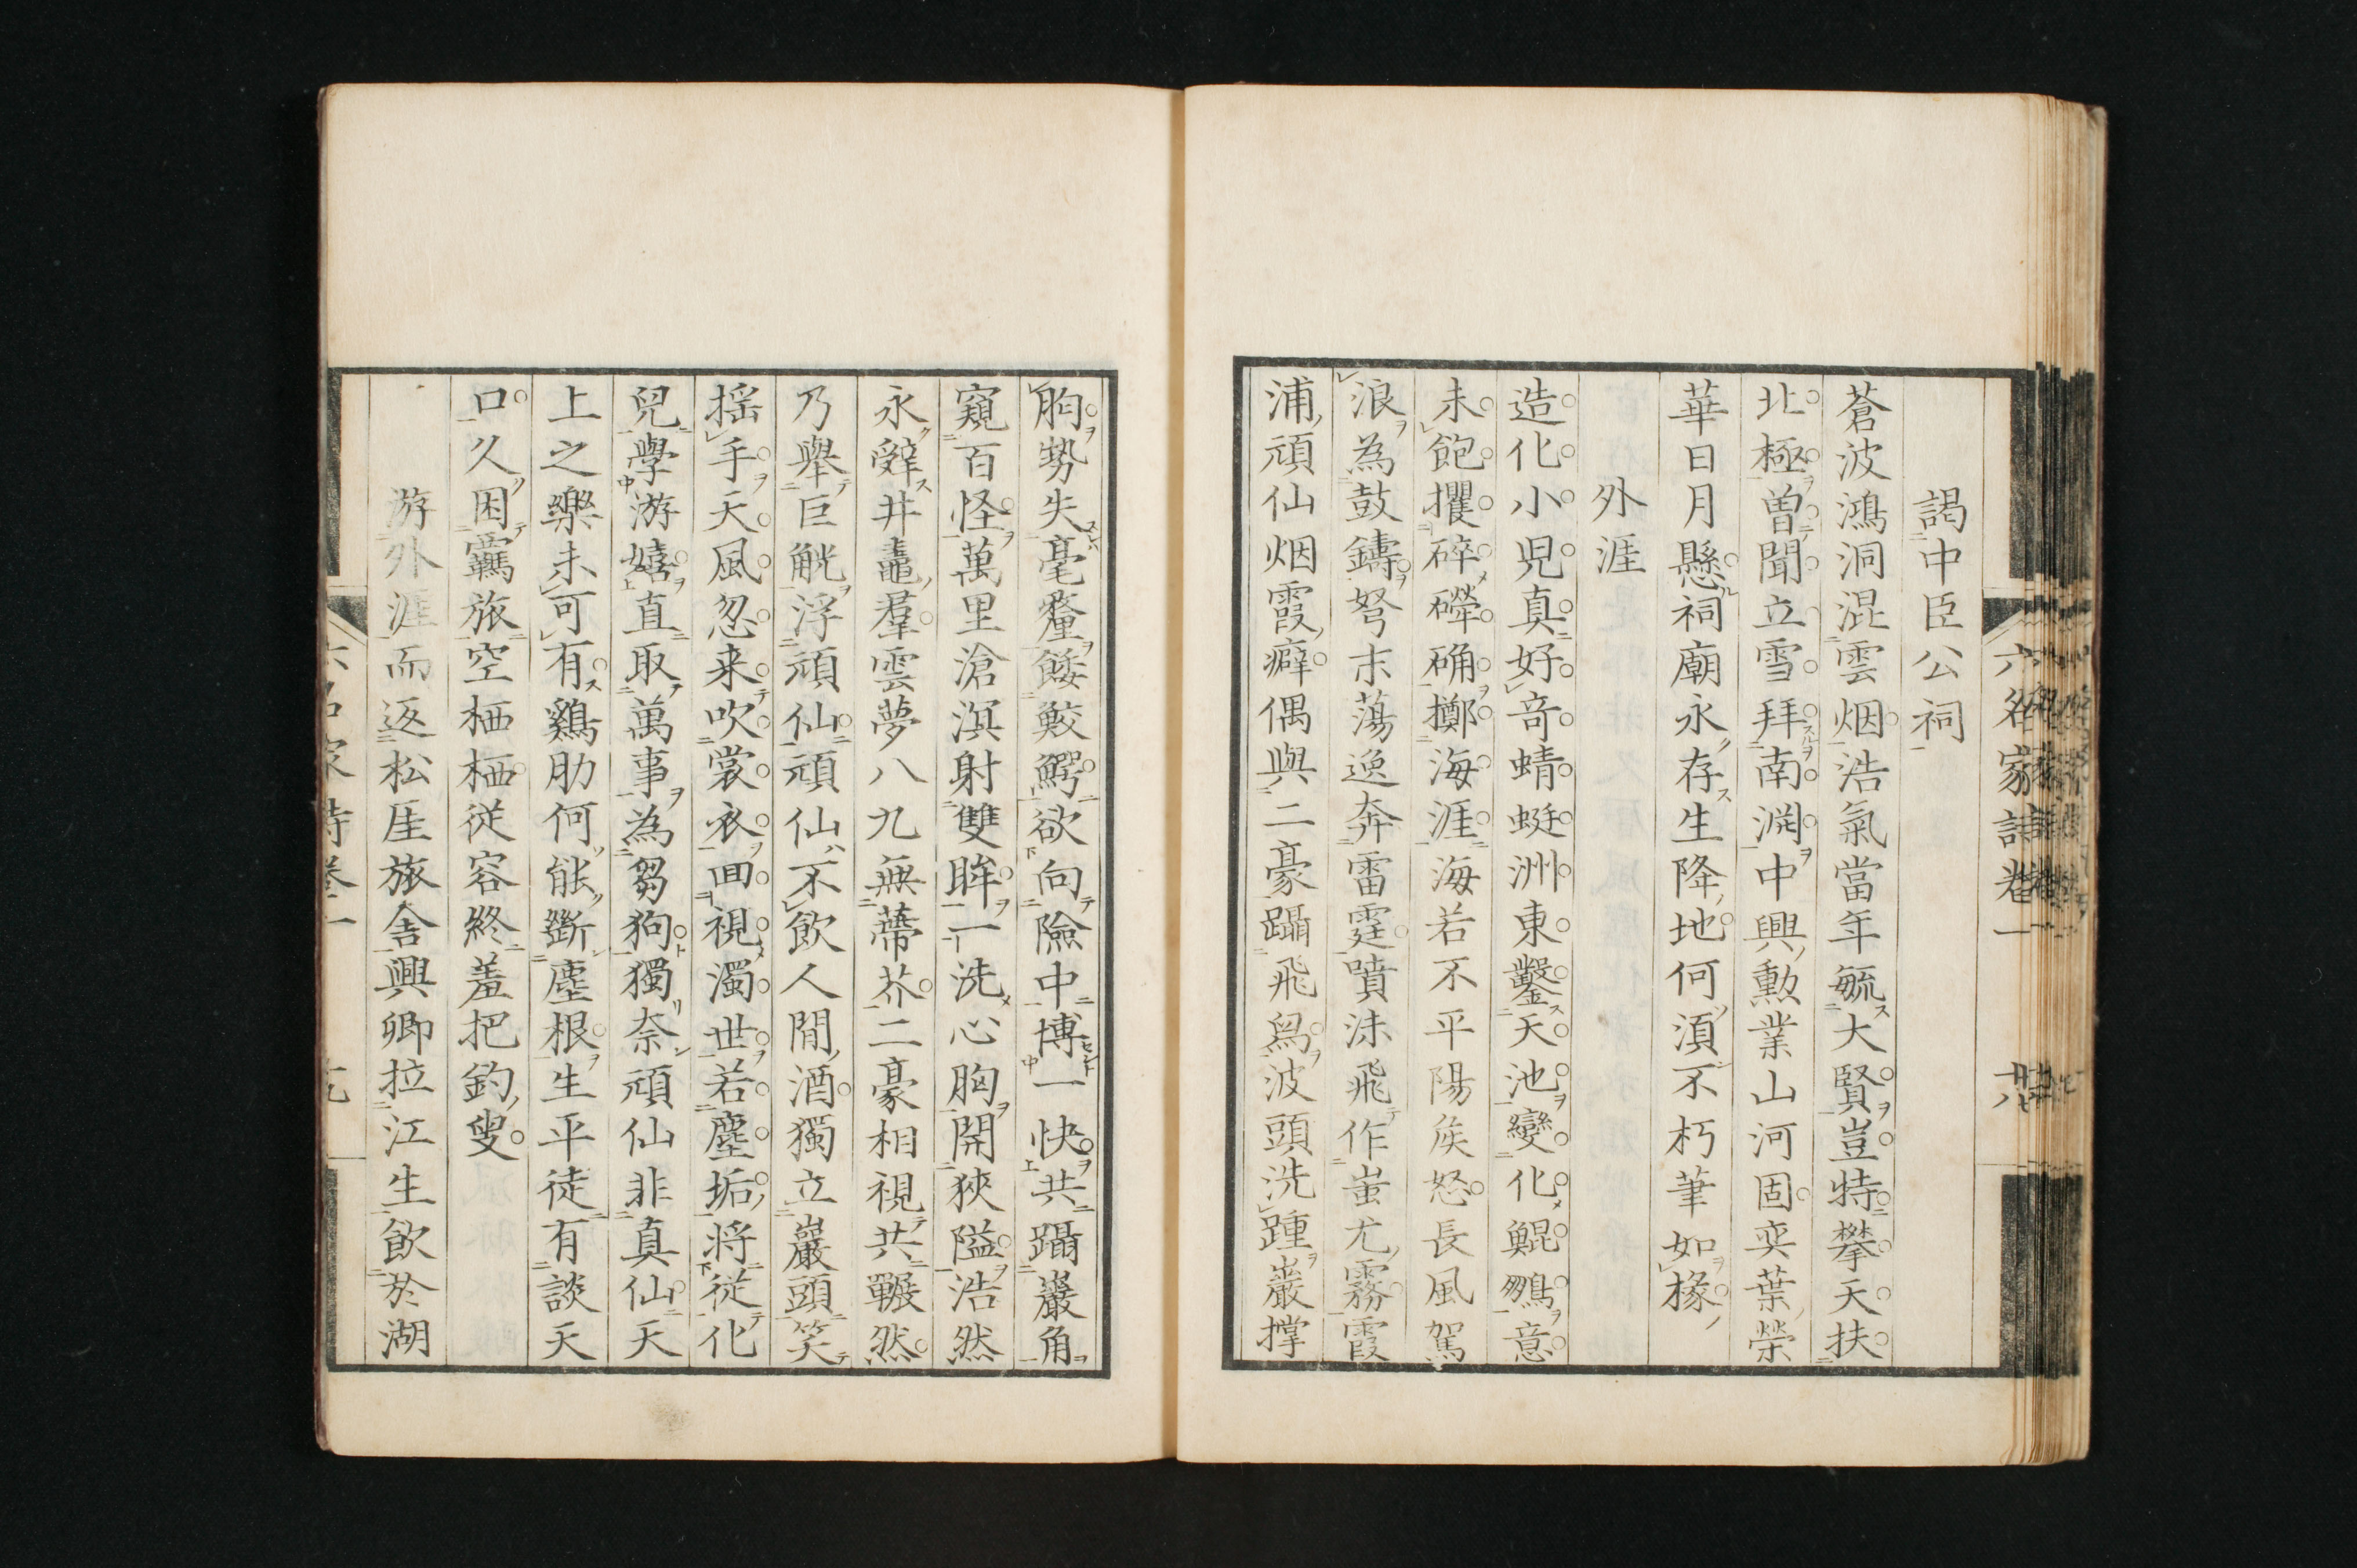 六名家詩卷一
謁中臣公祠
蒼波鴻洞混雲烟浩氣當年毓大賢豈特攀天扶
北極曽聞立雪拜南渕中興勲業山河固奕葉榮
華日月懸祠廟永存生降地何湏不朽筆如椽
外涯
造化小児真好竒蜻蜓洲東鑿天池變化鯤鶵意
未飽攫碎礐确擲海涯海若不平陽矦怒長風駕
浪為鼓鑄弩末蕩逸奔雷霆噴沫飛作蚩尤霧霞
浦頑仙烟霞癖偶與二豪躡飛舄波頭洗踵巖撑
胸勢失毫釐餧鮫鰐欲向險中博一快共躡巖角
窺百怪萬里滄溟射雙眸一洗心胸開狹隘浩然
永辤井鼃羣雲夢八九無蔕芥二豪相視共囅然
乃舉巨觥浮頑仙頑仙不飲人間酒獨立巖頭笑
揺手天風忽来吹裳衣回視濁世若塵垢将従化
兒學游嬉直取萬事為芻狗獨奈頑仙非真仙天
上之樂未可有鷄肋何能斷塵根生平徒有談天
口久困羈旅空栖栖従容終羞把釣叟
游外涯而返松厓旅舎興卿拉江生飲於湖